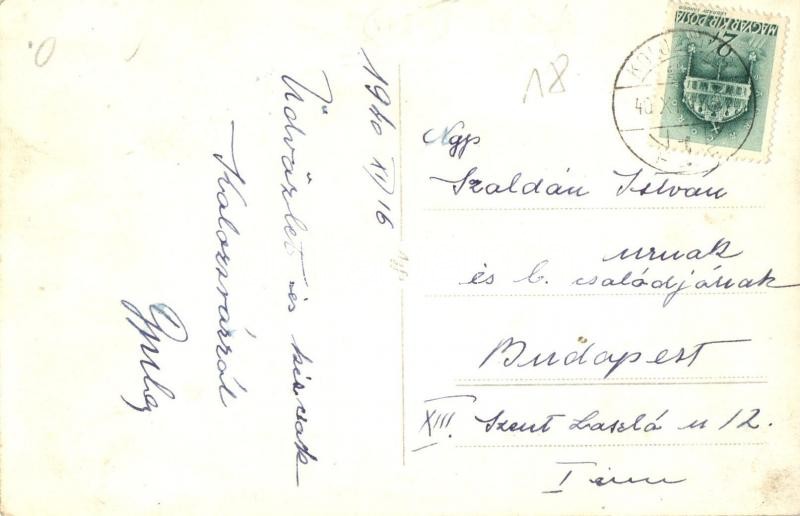 1940 XI/16
Üdvözlet és
Kolozsvárról
Gyula
18
Ngs
Szaldán István
urnak
és b. családjának
Budapest
XIII. Szent László u 12.
I em
MAGYAR KIR. POSTA
2f
KOLOZSVÁR
40 X